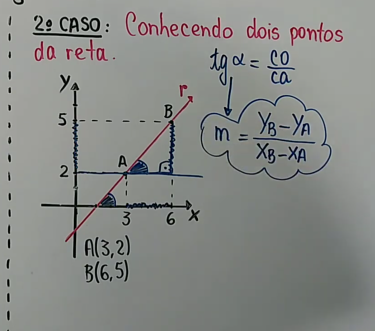 2º CASO: Conhecendo dois pontos
da reta.
tg α = CO/CA
m = (yB – yA)/(xB – xA)
y
r
B
5
A
2
3
6
x
A(3,2)
B(6,5)